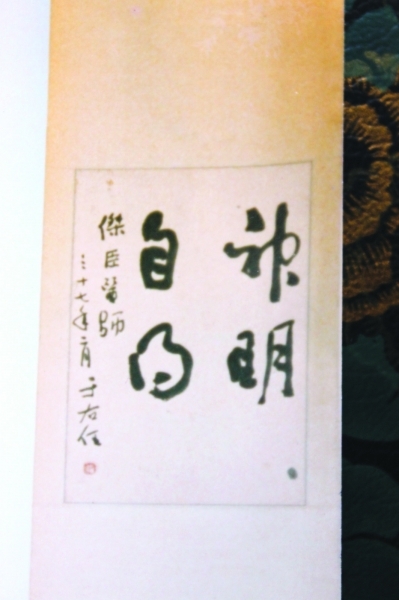 神明
自得
傑臣醫師
三十七年二月于右任